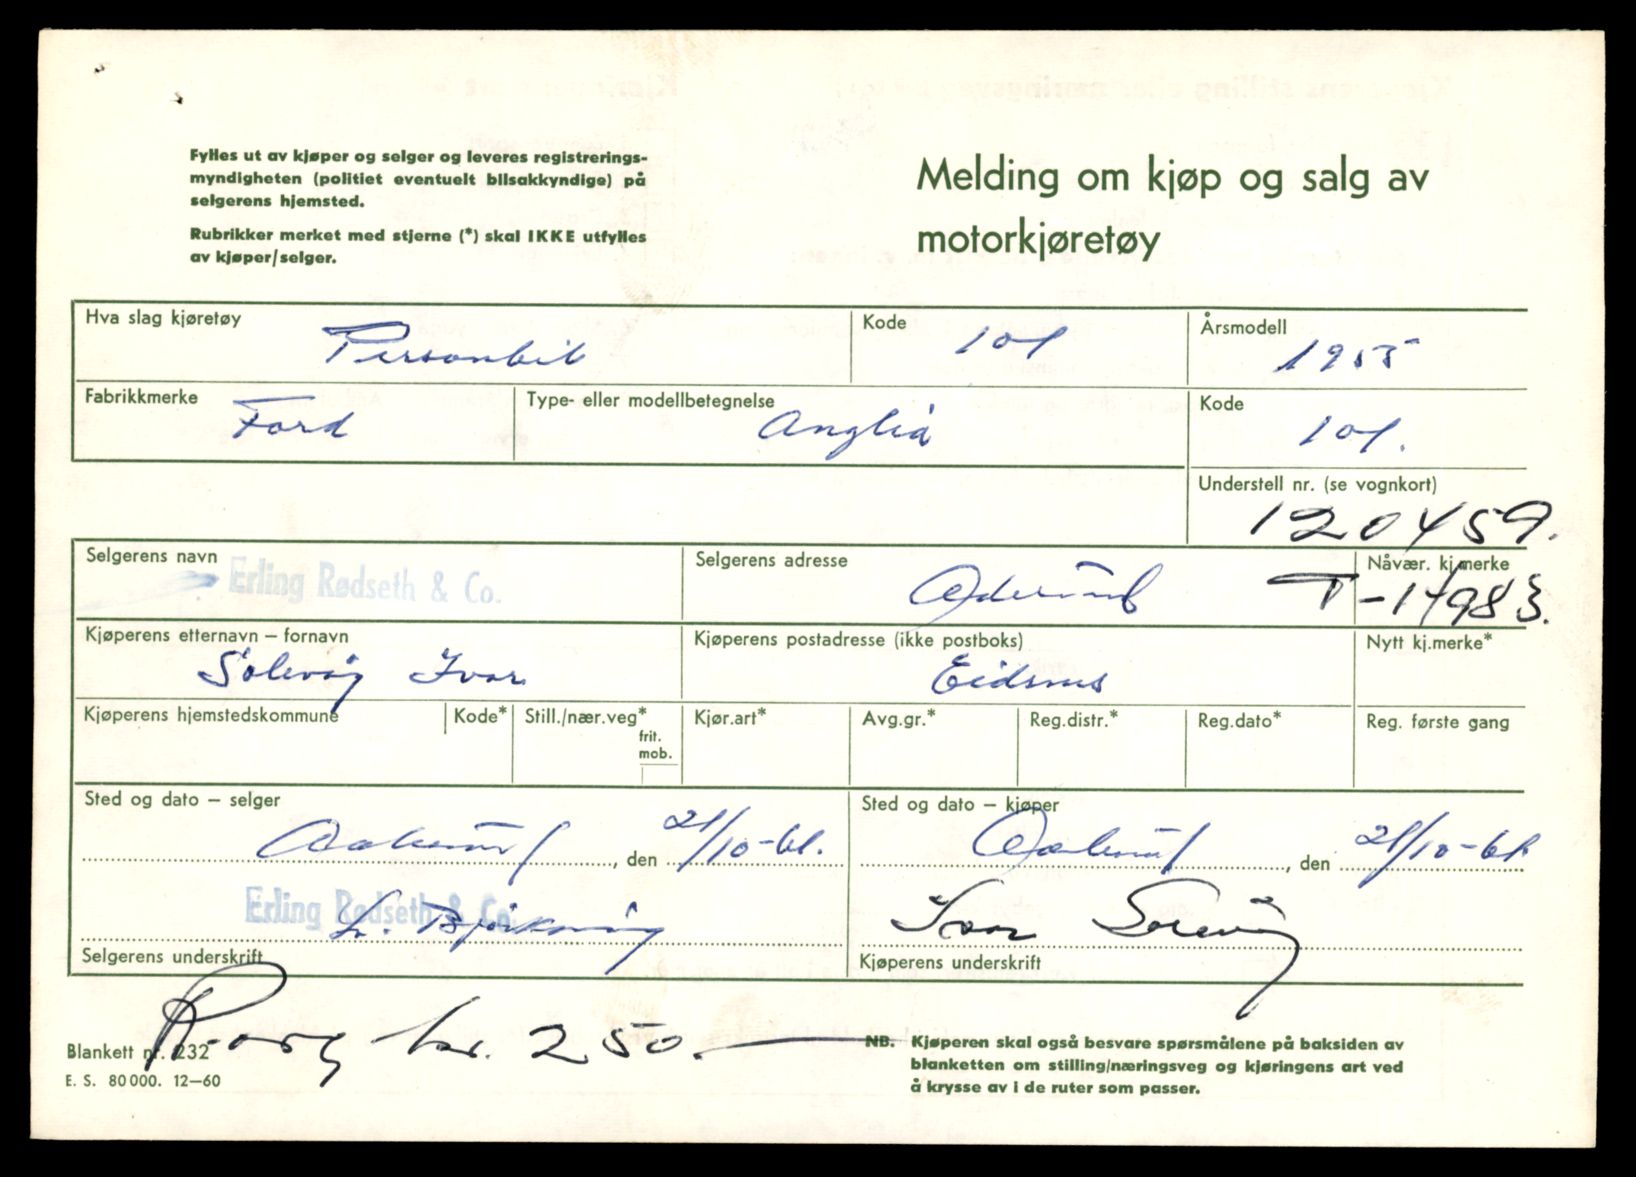 Fylles ut av kjøper og selger og leveres registrerings-
myndigheten (politiet eventuelt bilsakkyndige) på
selgerens hjemsted.
Rubrikker merket med stjerne (*) skal IKKE utfylles
av kjøper/selger.
Melding om kjøp og salg av
motorkjøretøy
Hva slag kjøretøy Personbil
Kode 101
Årsmodell 1955
Fabrikkmerke Ford
Type- eller modellbetegnelse Anglia
Kode 101.
Understell nr. (se vognkort)
120459.
Selgerens navn Erling Rødseth & Co.
Selgerens adresse
Nåvær. kj.merke
T-14983.
Kjøperens etternavn – fornavn
Solevåg Ivar
Kjøperens postadresse (ikke postboks)
Eidsnes
Nytt kj.merke*
Kjøperens hjemstedskommune
Kode*
Still./nær.veg*
frit.
mob.
Kjør.art*
Avg.gr.*
Reg.distr.*
Reg.dato*
Reg. første gang
Sted og dato – selger
, den 21/10-61.
Sted og dato – kjøper
, den 21/10-61
Erling Rødseth & Co.
Selgerens underskrift
Ivar Solevåg
Kjøperens underskrift
kr. 250.—
Blankett nr. 232
E. S. 80000. 12–60
NB. Kjøperen skal også besvare spørsmålene på baksiden av
blanketten om stilling/næringsveg og kjøringens art ved
å krysse av i de ruter som passer.